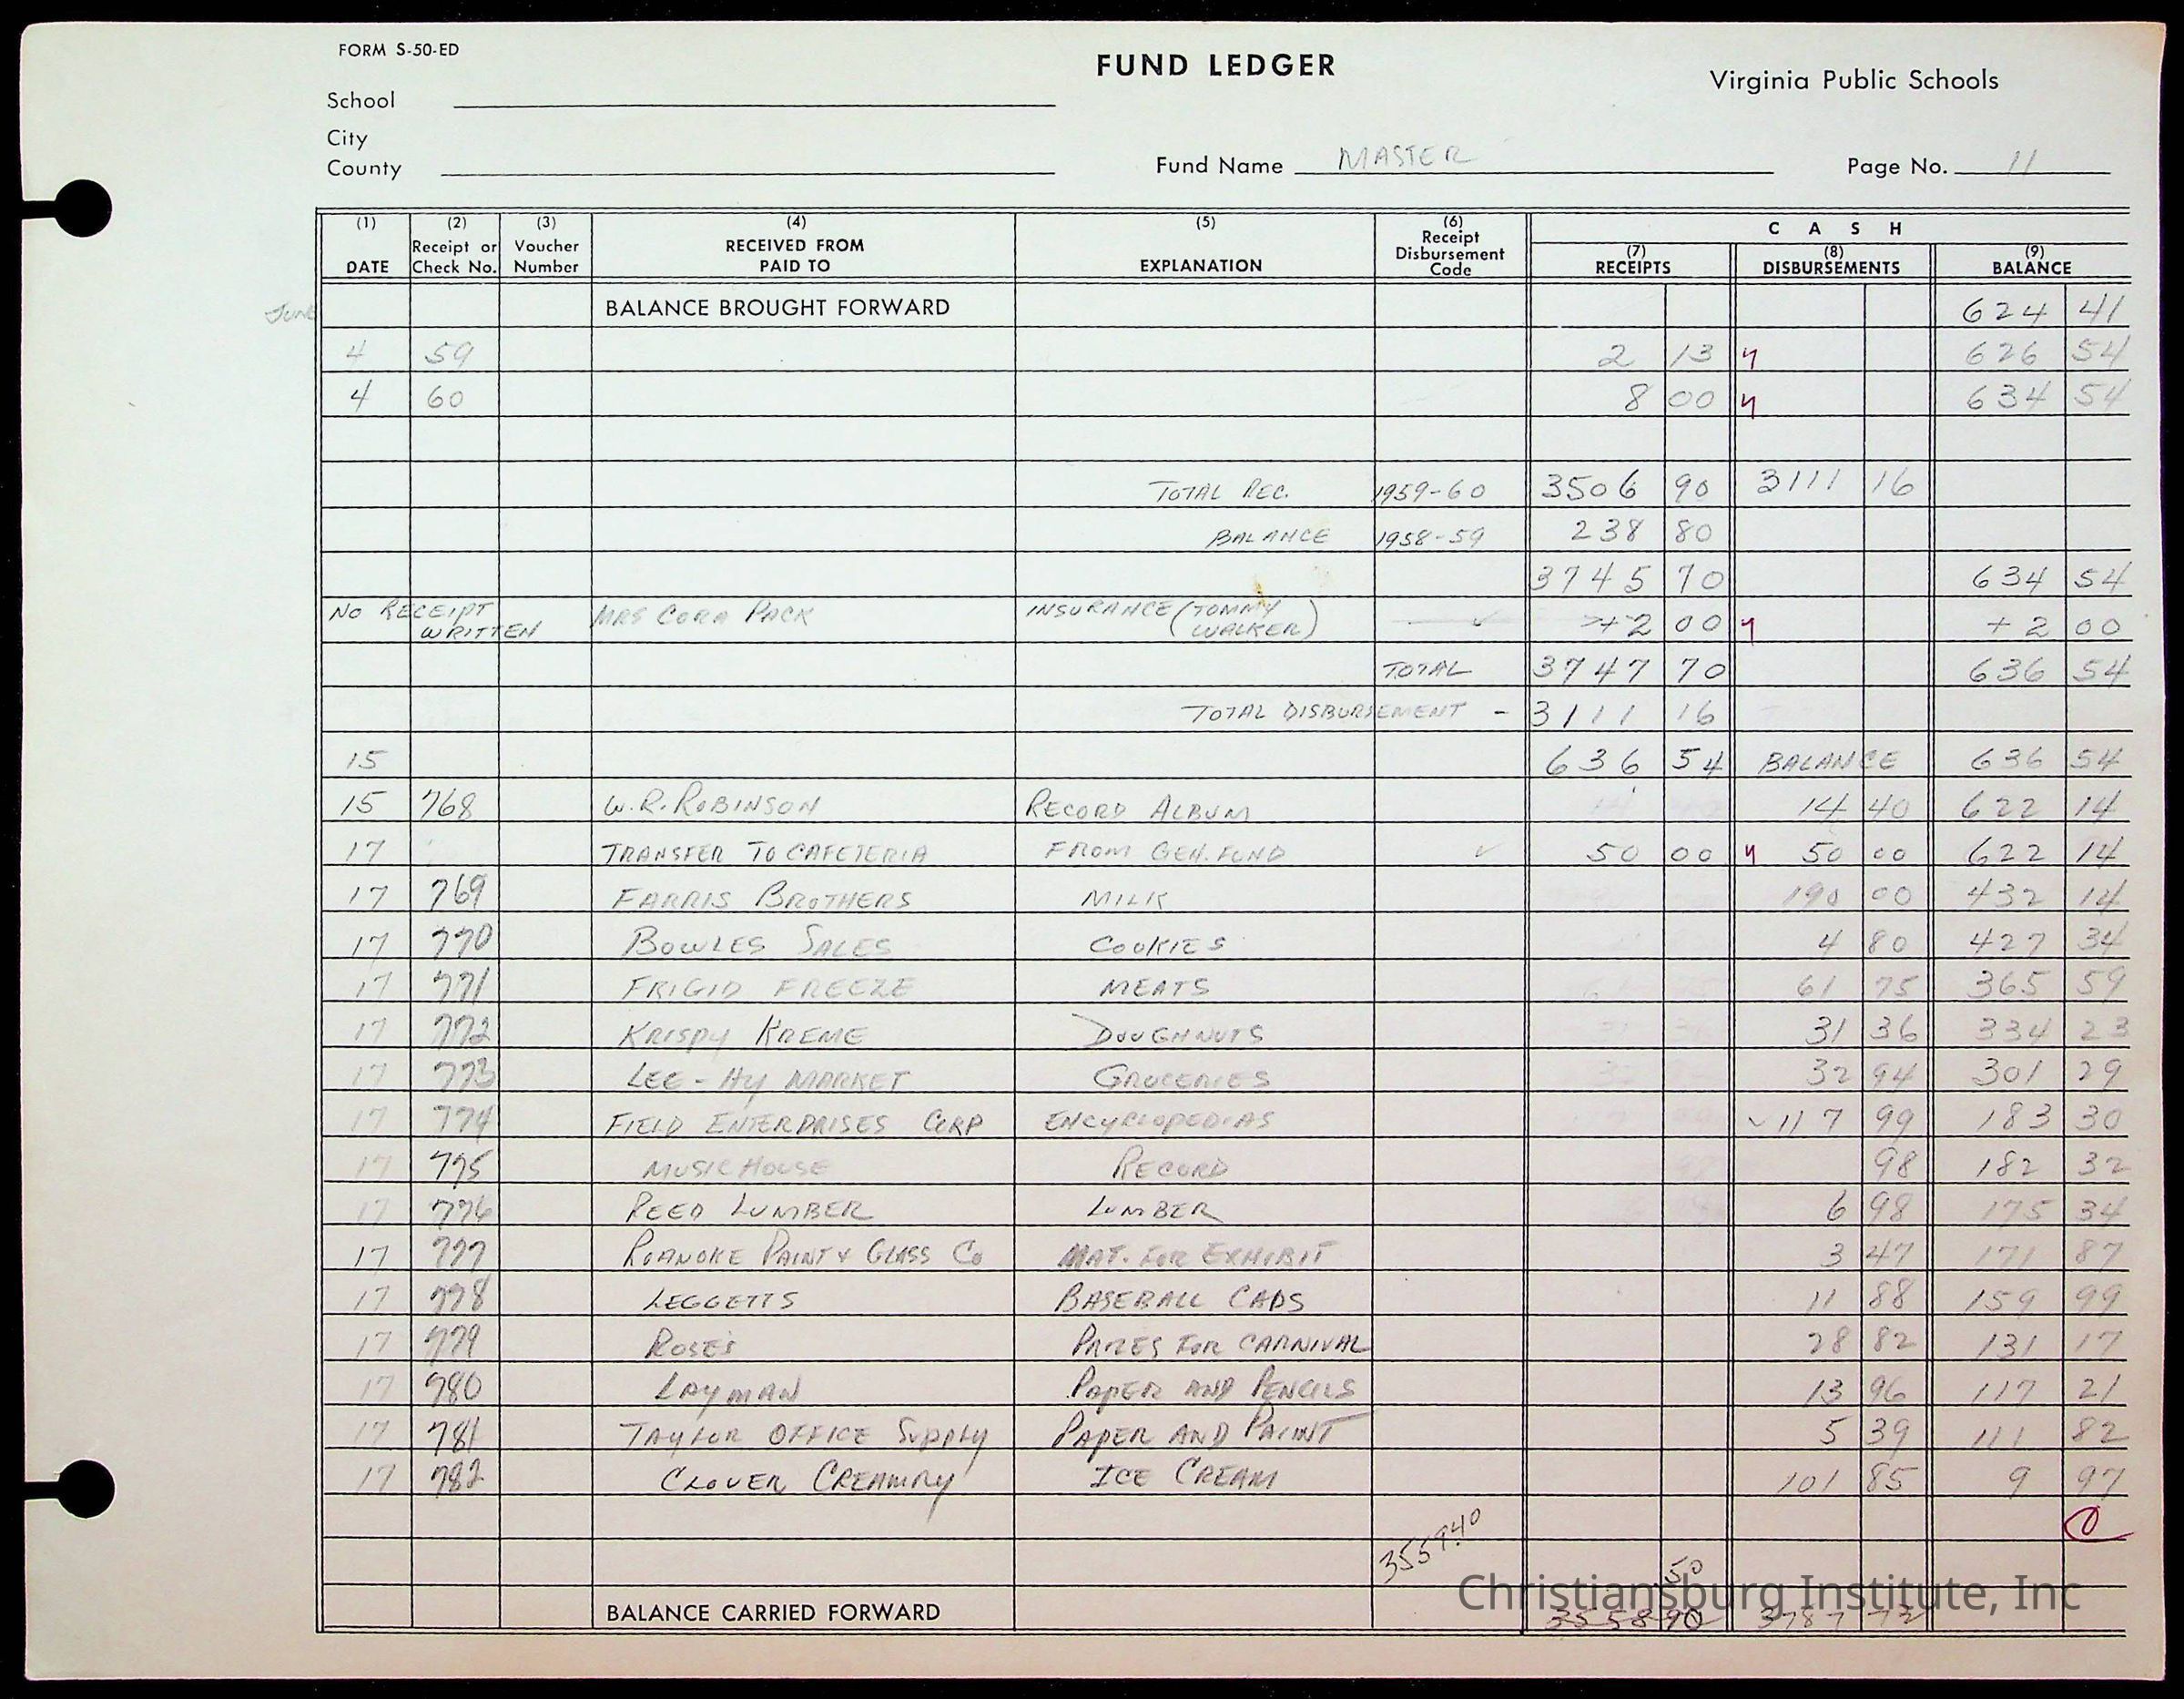 FORM S-50-ED
FUND LEDGER
Virginia Public Schools
School
City
County
Fund Name MASTER
Page No. 11
(1) DATE (2) Receipt or Check No. (3) Voucher Number (4) RECEIVED FROM PAID TO (5) EXPLANATION (6) Receipt Disbursement Code CASH (7) RECEIPTS (8) DISBURSEMENTS (9) BALANCE
JUNE BALANCE BROUGHT FORWARD 624 41
4 59 2 13 626 54
4 60 8 00 634 54
TOTAL REC. 1959-60 3506 90 3111 16
BALANCE 1958-59 238 80
3745 70 634 54
NO RECEIPT WRITTEN MRS CORA PACK INSURANCE (TOMMY WALKER) ✓ +2 00 +2 00
TOTAL 3747 70 636 54
TOTAL DISBURSEMENT - 3111 16
15 636 54 BALANCE 636 54
15 768 W.R. ROBINSON RECORD ALBUM 14 40 622 14
17 TRANSFER TO CAFETERIA FROM GEN. FUND ✓ 50 00 50 00 622 14
17 769 FARRIS BROTHERS MILK 190 00 432 14
17 770 BOWLES SALES COOKIES 4 80 427 34
17 771 FRIGID FREEZE MEATS 61 75 365 59
17 772 KRISPY KREME DOUGHNUTS 31 36 334 23
17 773 LEE-HY MARKET GROCERIES 32 94 301 29
17 774 FIELD ENTERPRISES CORP ENCYCLOPEDIAS ✓ 117 99 183 30
17 775 MUSIC HOUSE RECORD 98 182 32
17 776 REED LUMBER LUMBER 6 98 175 34
17 777 ROANOKE PAINT & GLASS CO MAT. FOR EXHIBIT 3 47 171 87
17 778 LEGGETTS BASEBALL CAPS 11 88 159 99
17 779 ROSE'S PRIZES FOR CARNIVAL 28 82 131 17
17 780 LAYMAN PAPER AND PENCILS 13 96 117 21
17 781 TAYLOR OFFICE SUPPLY PAPER AND PAINT 5 39 111 82
17 782 CLOVER CREAMRY ICE CREAM 101 85 9 97
3559.40
50
BALANCE CARRIED FORWARD 3558 90 3787 73
Christiansburg Institute, Inc